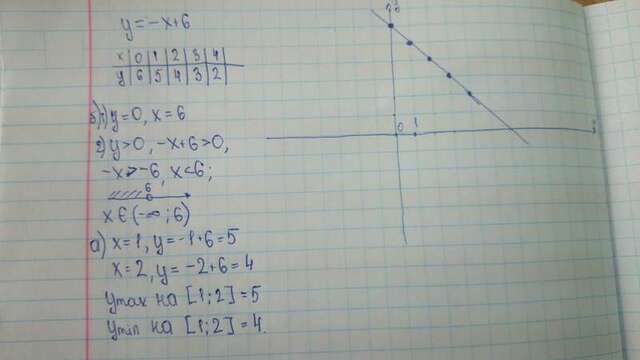 y=-x+6
x 0 1 2 3 4
y 6 5 4 3 2
б) 1) y=0, x=6
2) y>0, -x+6>0,
-x>-6, x<6;
6
x∈(-∞;6)
а) x=1, y=-1+6=5
x=2, y=-2+6=4
ymax на [1;2]=5
ymin на [1;2]=4.
0 1